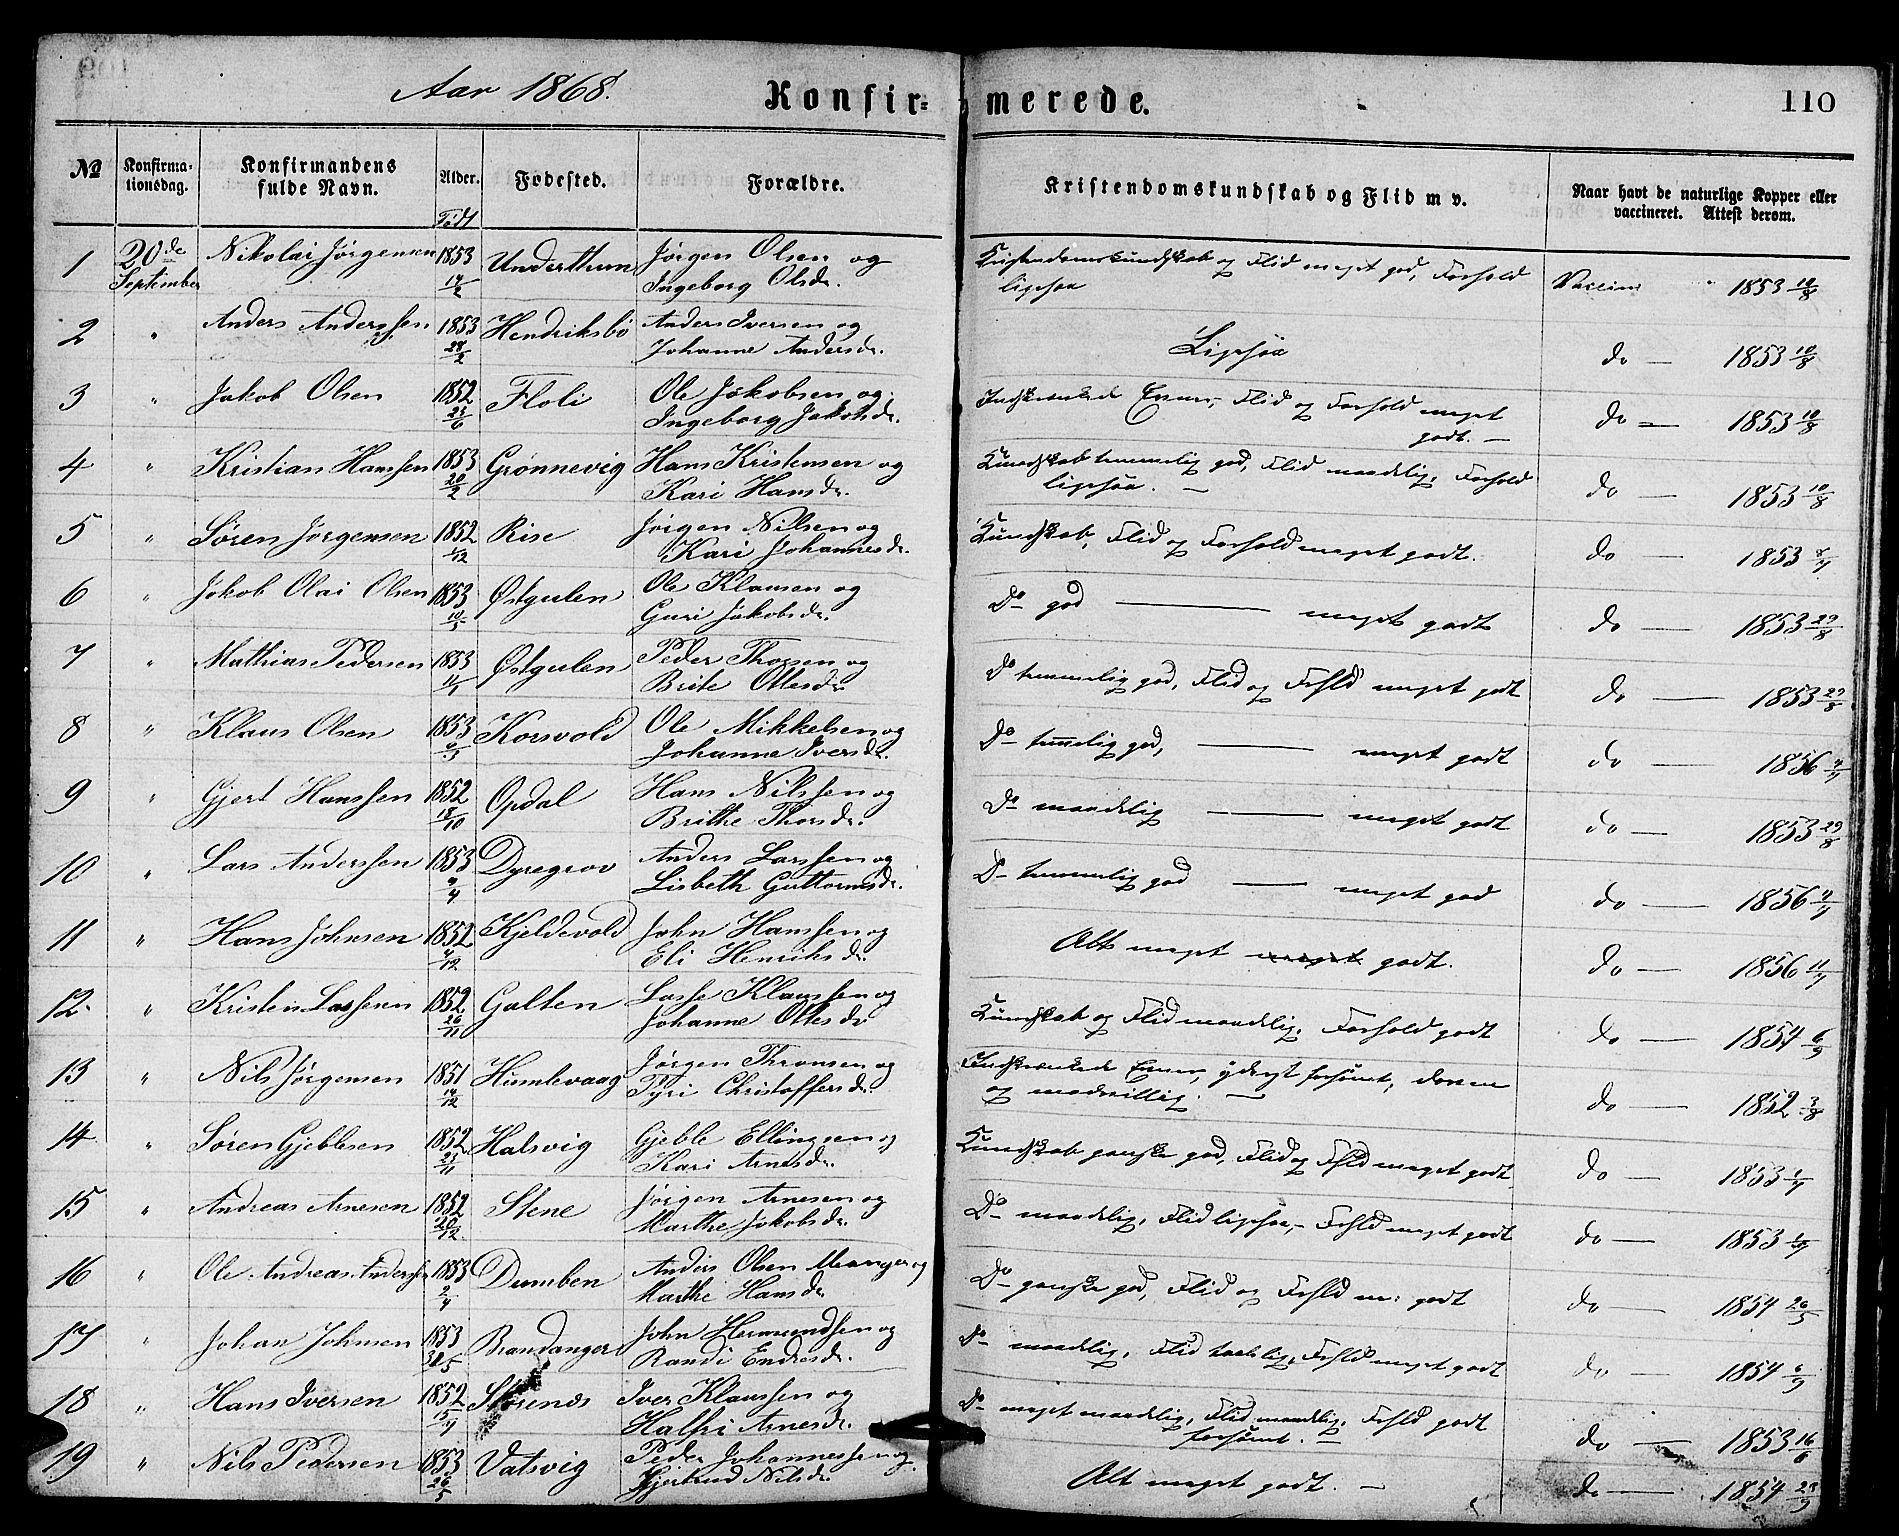 Aar 1868. Konfir= merede. 110
No Konfirma- tionsdag. Konfirmandens fulde Navn. Alder. Fødested. Forældre. Kristendomskundskab og Flid m v. Naar havt de naturlige Kopper eller vaccineret. Attest derom.
Født
1 20de Nikolai Jørgensen 1853 Underthun Jørgen Olsen og Kristendomskundskab og Flid meget god, Forhold
September 14/2 Ingeborg Olsdr. ligesaa Vaccin 1853 10/8
2 " Anders Anderssen 1853 Hendriksbø Anders Iversen og
28/2 Johanne Andersdr. Ligesaa do — 1853 10/8
3 " Jakob Olsen 1852 Floli Ole Jakobsen og Indskrænkede Evner, Flid og Forhold meget
23/6 Ingeborg Jakobsdr. godt. — do — 1853 10/8
4 " Kristian Hanssen 1853 Grønnevig Hans Kristensen og Kundskab temmelig god, Flid maadelig, Forhold
20/2 Kari Hansdr. ligesaa. — do — 1853 10/8
5 " Søren Jørgensen 1852 Rise Jørgen Nilsen og Kundskab, Flid og Forhold meget godt.
/12 Kari Johannesdr. do — 1853
6 " Jakob Olai Olsen 1853 Østgulen Ole Klausen og Do god — meget godt
10/5 Guri Jakobsdr. do — 1853 29/8
7 " Mathias Pedersen 1853 Østgulen Peder Thorsen og Do temmelig god, Flid og Forhld meget godt
11/1 Brite Ottesdr do — 1853 29/8
8 " Klaus Olsen 1853 Korsvold Ole Mikkelsen og Do temmelig god, — meget godt
Johanne Iversdr. do — 1856
9 " Gjert Hanssen 1852 Opdal Hans Nilssen og Do maadelig — meget godt
18/10 Brithe Thorsdr. do — 1853 29/8
10 " Lars Anderssen 1853 Dyregrov Anders Larssen og Do temmelig god — meget god
Lisbeth Guttormsdr. do — 1856
11 " Hans Johnsen 1852 Kjeldevold John Hanssen og Alt meget meget godt.
4/12 Eli Henriksdr. do — 1856
12. " Kristen Lassenn 1852 Galten Lasse Klaussen og Kundskab og Flid maadelig, Forhold godt
26/11 Johanne Ottesdr do — 1854 6/9
13 " Nils Jørgensen 1851 Humlevaag Jørgen Thronsen og Indskrænkede Evner, yderst forsømt, doven
14/12 Tyri Christoffersdr. og modvillig. — do — 1852 3/8
14 " Søren Gjeblesen 1852 Halsvig Gjeble Ellingsen og Kundskab ganske god, Flid og Fhld meget godt
23/11 Kari Arnesdr. do — 1853
15 " Andreas Arnesen 1852 Stene Jørgen Arnesen og Do maadelig, Flid ligesaa, — Forhld meget godt
20/12 Marthe Jakobsdr. do — 1853
16 " Ole Andreas Anderssen 1853 Dumben Anders Olsen Meanger og Do ganske god, Flid og Forhld m: godt
2/4 Marthe Hansdr do — 1854 26/5
17 " Johan Johnsen 1853 Brandanger John Hermundsen og Do maadelig, Flid taalelig, Forhld meget godt
Randi Endresdr. do — 1854 6/9
18 " Hans Iversen 1852 Størenæs Iver Klaussen og Do meget maadelig, Flid maadelig, Forhld godt
Halfri Arnesdr. forsømt. — do — 1853 16/8
19 " Nils Pedersen 1853 Vatsvig Peder Johannessen og Alt meget godt. —
26/5 Gjertrud Nilsdr do — 1854